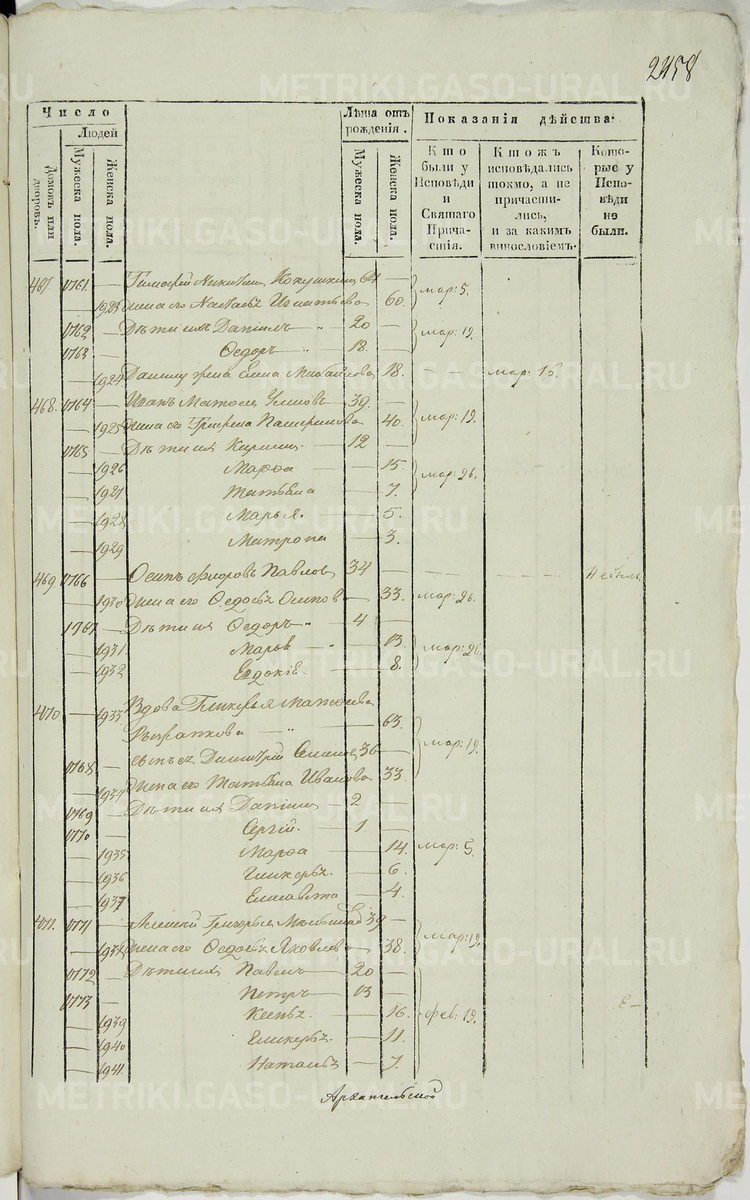 2458
Число
Людей
Домовъ или дворовъ.
Мужеска пола.
Женска пола.
Лѣта отъ рожденія.
Мужеска пола.
Женска пола.
Показанія дѣйства:
Кто были у Исповѣди и Святаго Причастія.
Ктожъ исповѣдались токмо, а не причастились, и за какимъ винословіемъ.
Которые у Исповѣди не были.
467 1761 — Тимофей Никитинъ Кокушкинъ 64 — мар: 5.
— 1923 жена его Настасья Игнатьева 60.
1762 — Дѣти ихъ Данiилъ — " 20 — мар: 19.
1763 — Ѳедоръ — " 18. —
— 1924 Данилу жена Елена Михайлова 18. — — мар: 16.
468. 1764 — Иванъ Матѳеевъ 39. — мар: 19.
— 1925 жена его 40.
1765 — Дѣти ихъ Кирилъ — 12 —
— 1926 Марѳа — 15. мар: 26.
— 1927 Татьяна — 7.
— 1928 Марья. — 5.
— 1929 Матрона — 3.
469 1766 — Осипъ Павловъ 34 — — — — Не былъ
— 1930 жена его Ѳедосья Осипова — 33. мар: 26.
1767 — Дѣти ихъ Ѳедоръ — " 4 —
— 1931 Марья — " 13 мар: 26.
— 1932 Евдокія. — 8.
470 — 1933 Вдова Гликерья Матѳеева
— " — 63. мар: 19.
1768 — сынъ ея Димитрій 36 —
— 1934 жена его Татьяна Иванова 33
1769 — Дѣти ихъ Данiилъ — 2 —
1770 — Сергій. — 1. —
— 1935 Марѳа — 14. мар: 5.
— 1936 Гликерья. — 6.
— 1937 Елисавета — 4.
471. 1771 — Алексѣй Григорьевъ 39 — мар: 19.
— 1938 жена его Ѳедосья Яковлева — 38.
1772 — Дѣти ихъ Павелъ — 20 —
1773 — Петръ — 13 —
— 1939 Ксенья. — 16. фев: 19.
— 1940 Гликерья. — 11.
— 1941 Наталья — 7.
Архангельской
METRIKI.GASO-URAL.RU